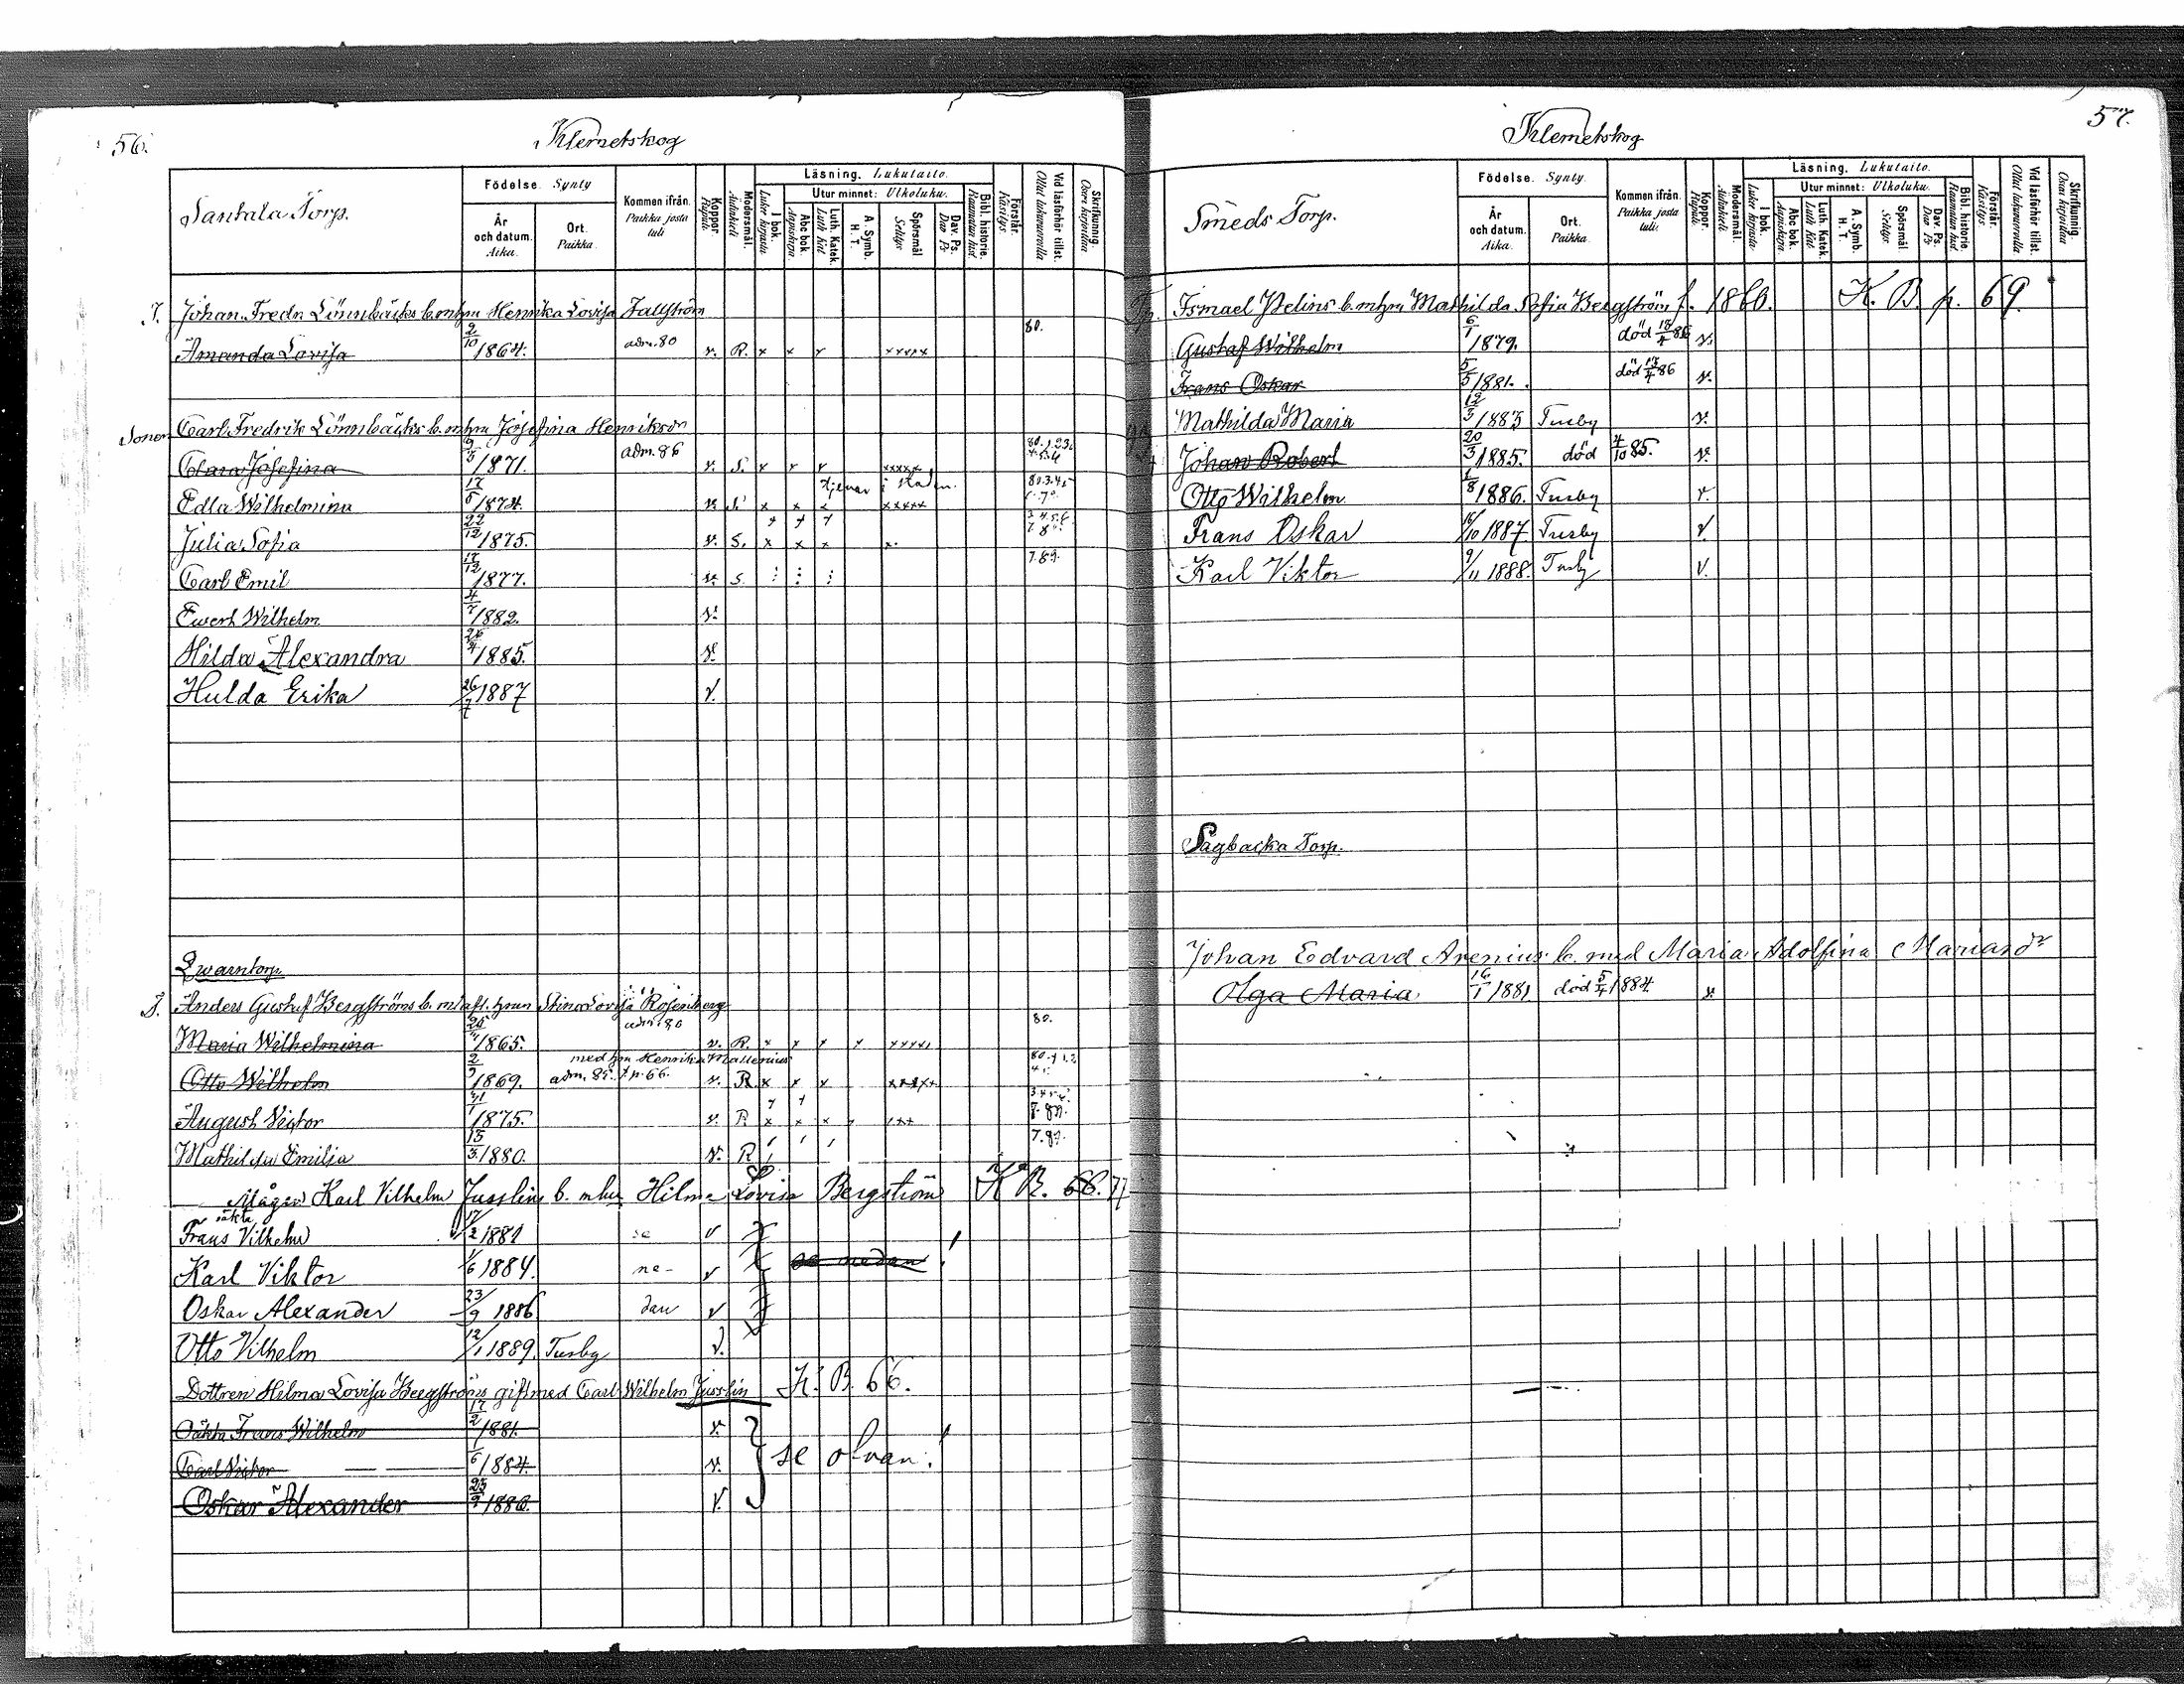 56.
Klemetskog
Santala Torp.
Födelse. Synty
År och datum. Aika.
Ort. Paikka.
Kommen ifrån. Paikka josta tuli
Koppor. Rupuli.
Modersmål. Äidinkieli
Läsning. Lukutaito.
I bok. Luker kirjasta
Utur minnet: Ulkoluku.
Abc bok. Aapiskirja.
Luth. Katek. Luth Kat
A. Symb. H. T.
Spörsmål Selitys
Dav. Ps. Dav Ps
Bibl. historie. Raamatun hist
Förstår. Käsitys.
Vid läsförhör tillst. Ollut lukuvuorolla
Skrifkunnig. Osaa kirjoittaa
T. Johan Fredr Lönnbäcks b. m hru Henrika Lovisa Fallström
Amanda Lovisa 2/10 1864. adm. 80 v. R. x x x xxxxx 80.
Sonen Carl Fredrik Lönnbäcks b. m hru Josefina Henrikson
Clara Josefina 9/5 1871. adm. 86 v. S. x x x xxxxx
Edla Wilhelmina 17/5 1874. v. S. x x x tjenar i staden. xxxxx
Julia Sofia 22/12 1875. v. S. x x x x.
Carl Emil 17/12 1877. v. S. 7.89.
Ewert Wilhelm 4/7 1882. v.
Hilda Alexandra 1885. v.
Hulda Erika 26/7 1887 v.
Qwarntorp.
T. Anders Gustaf Bergströms b. m afl. hrun Stina Lovisa Rosenberg
Maria Wilhelmina 1865. adm. 80 v. R. x x x x xxxxx 80.
med hru Henrika Mallenius
Otto Wilhelm 2/9 1869. adm. 85. t.p. 66. v. R. x x x xxxxx
August Victor 1875. v. R. x x x xxx
Mathilda Emilia 15/3 1880. v. R 7.89.
Mågen Karl Vilhelm Jusslins b. m hu Hilma Lovisa Bergström K B. 66. 77
oäkta
Frans Vilhelm 17/2 1881 se v
Karl Viktor 1/6 1884. ne- v se nedan!
Oskar Alexander 23/9 1886 dan v
Otto Vilhelm 12/1 1889. Tusby v.
Dottren Hilma Lovisa Bergströms gift med Carl Wilhelm Jusslin K. B. 66.
Oäkta Frans Wilhelm 17/2 1881. v.
Carl Victor 1/6 1884. v. se ofvan!
Oskar Alexander 23/9 1886. v.
57.
Klemetskog
Smeds Torp.
Födelse. Synty.
År och datum. Aika.
Ort. Paikka.
Kommen ifrån. Paikka josta tuli.
Koppor. Rupuli.
Modersmål. Äidinkieli
Läsning. Lukutaito.
I bok. Luker kirjasta.
Utur minnet: Ulkoluku.
Abc bok. Aapiskirja.
Luth. Katek. Luth Kat
A. Symb. H. T.
Spörsmål Selitys
Dav. Ps. Dav Ps
Bibl. historie. Raamatun hist
Förstår. Käsitys.
Vid läsförhör tillst. Ollut lukuvuorolla
Skrifkunnig. Osaa kirjoittaa
Tp. Ismael Idelins b. m hru Mathilda Sofia Bergström f. 1860. K. B. p. 69.
Gustaf Wilhelm 6/1 1879. död 18/4 86 v.
Frans Oskar 5/5 1881. död 13/4 86 v.
Mathilda Maria 12/3 1883 Tusby v.
Johan Robert 20/3 1885. död 4/10 85. v.
Otto Wilhelm 1/8 1886. Tusby v.
Frans Oskar 15/10 1887 Tusby v
Karl Viktor 9/11 1888. Tusby v.
Sagbacka Torp.
Johan Edvard Arenius b. med Maria Adolfina Mariasdr
Olga Maria 16/1 1881 död 5/4 1884. v.